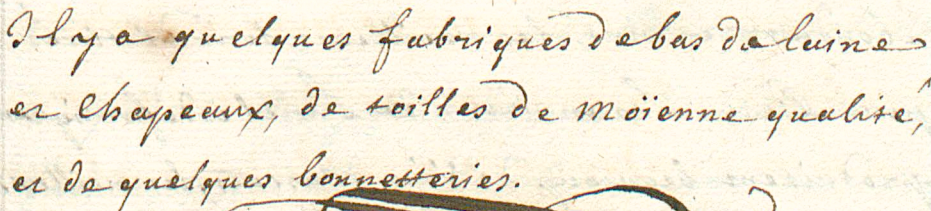 Il y a quelques fabriques de bas de laine
et Chapeaux, de toilles de Moïenne qualité,
et de quelques bonnetteries.